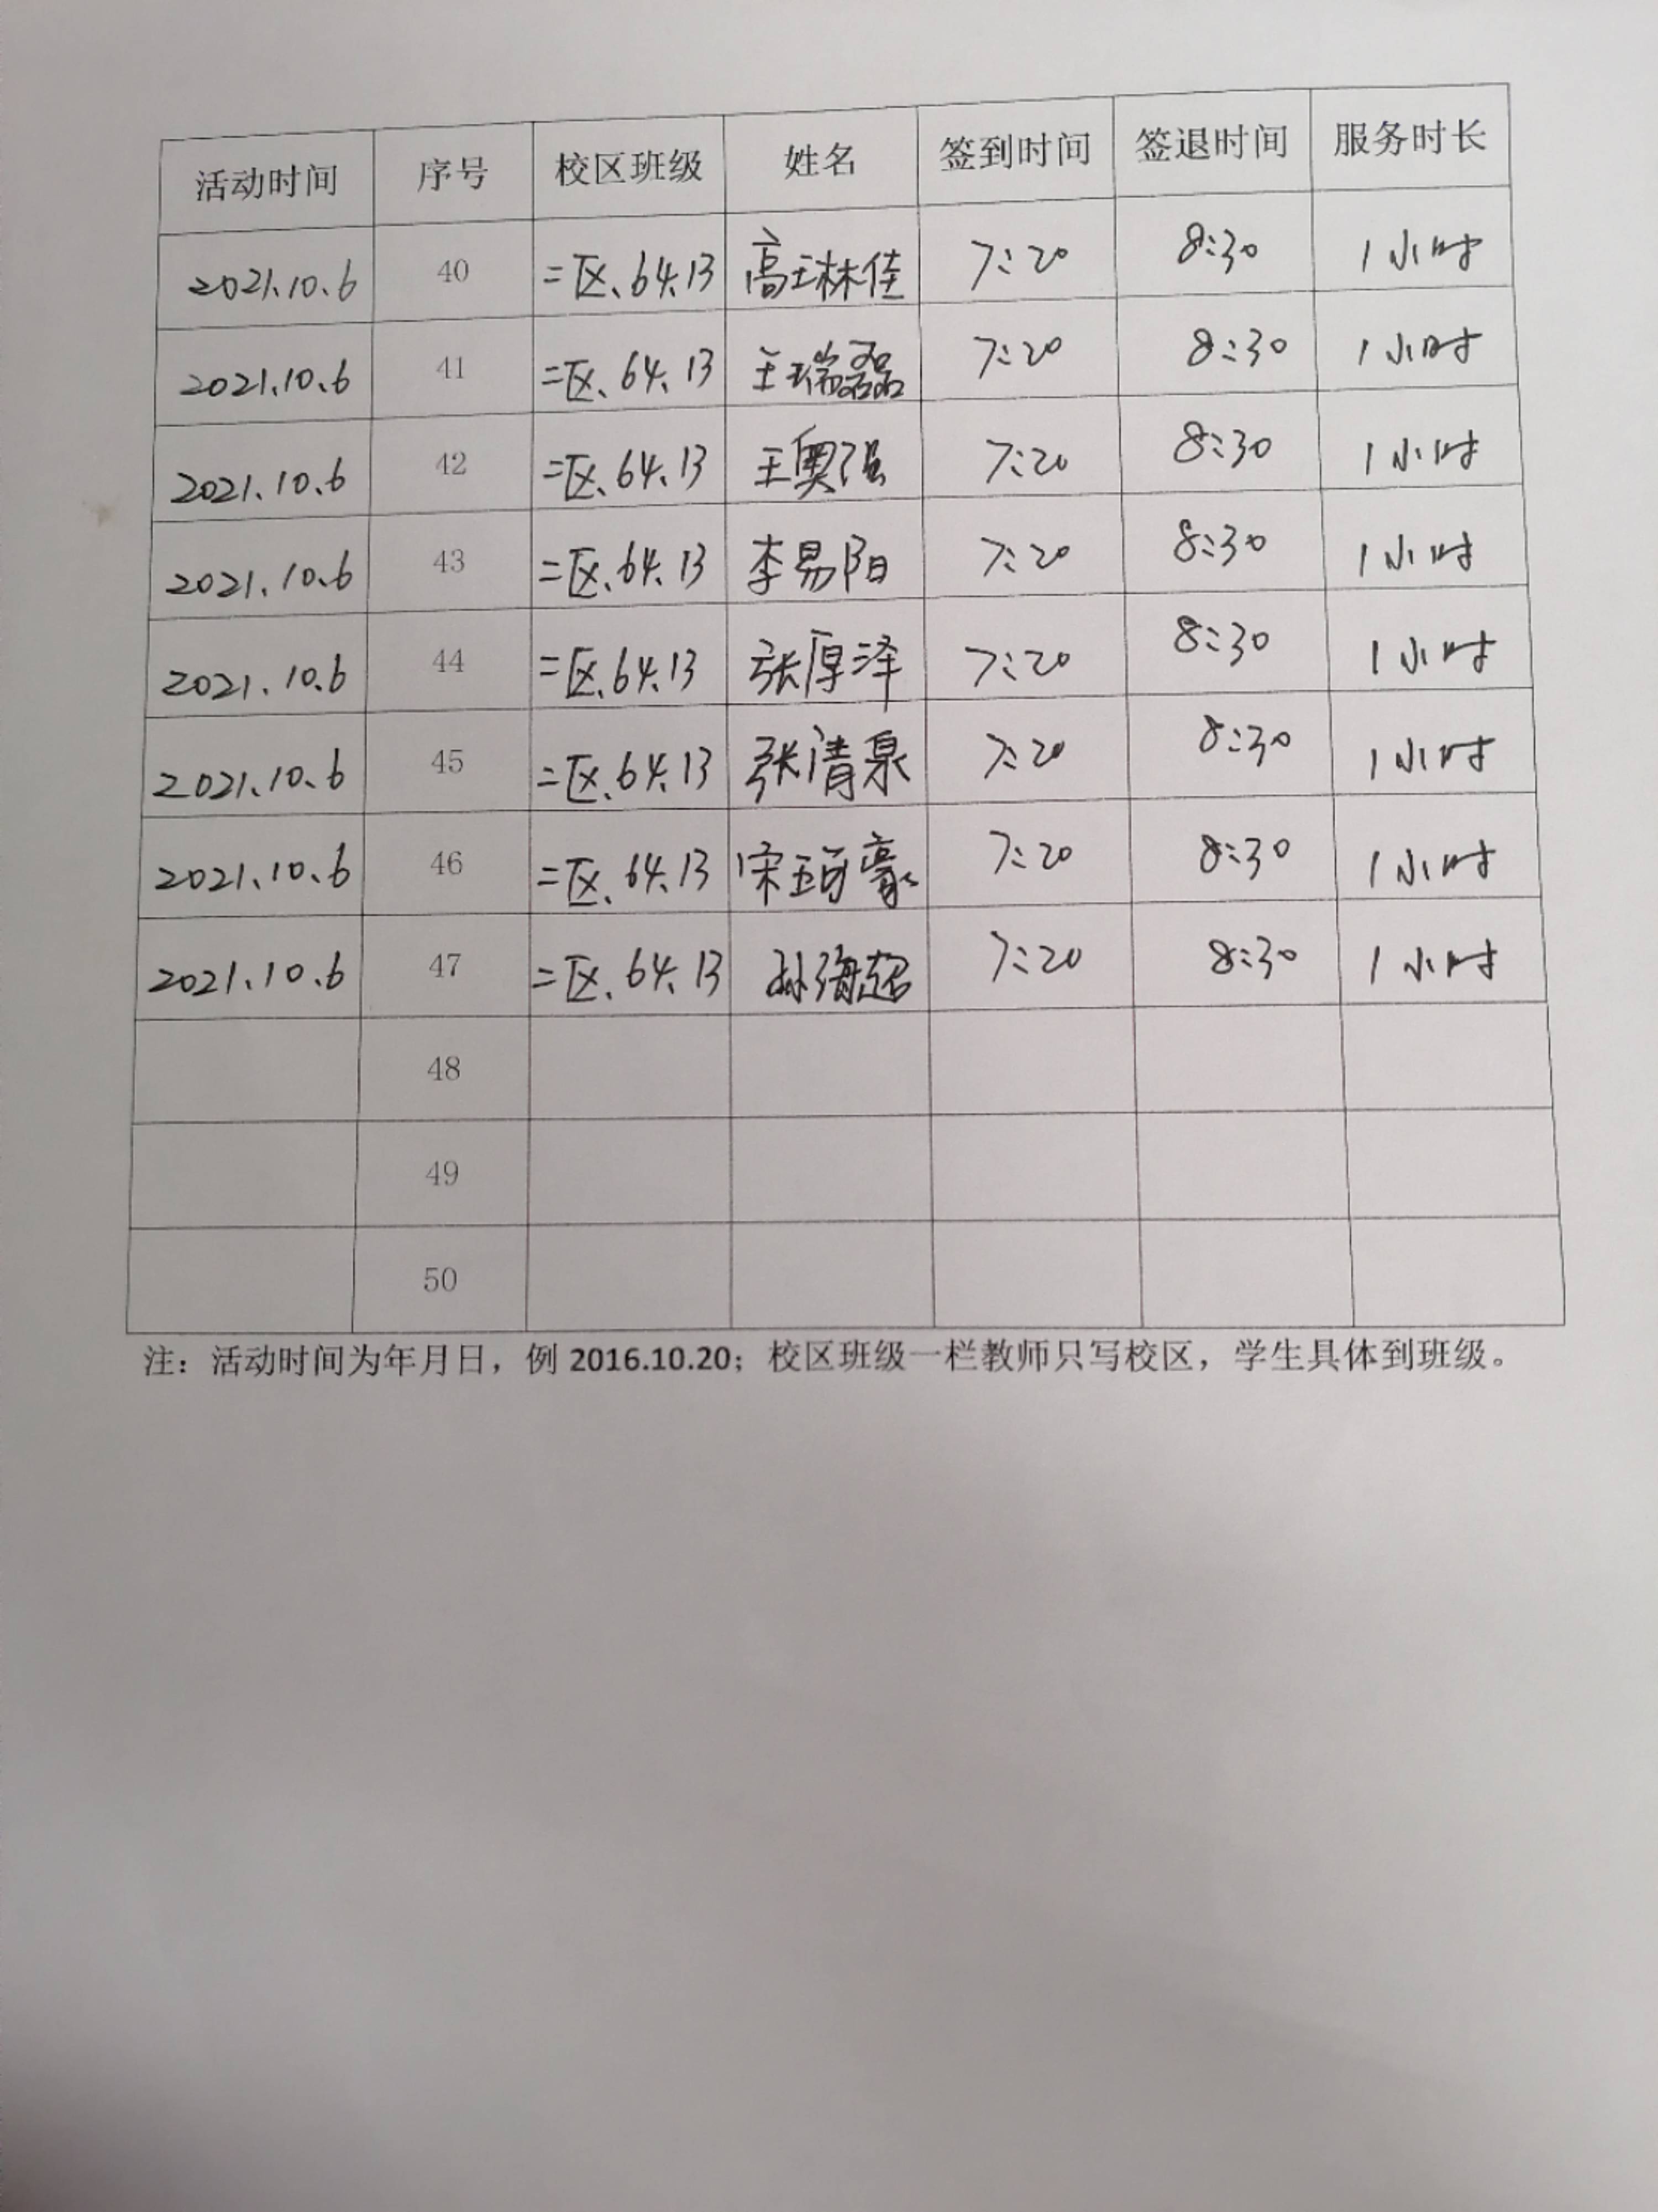 活动时间 序号 校区班级 姓名 签到时间 签退时间 服务时长
2021.10.6 40 二区、64.13 高琳佳 7:20 8:30 1小时
2021.10.6 41 二区、64.13 王瑞磊 7:20 8:30 1小时
2021.10.6 42 二区、64.13 王奥强 7:20 8:30 1小时
2021.10.6 43 二区、64.13 李易阳 7:20 8:30 1小时
2021.10.6 44 二区、64.13 张厚泽 7:20 8:30 1小时
2021.10.6 45 二区、64.13 张清泉 7:20 8:30 1小时
2021.10.6 46 二区、64.13 宋珀豪 7:20 8:30 1小时
2021.10.6 47 二区、64.13 孙海超 7:20 8:30 1小时
48
49
50
注：活动时间为年月日，例 2016.10.20；校区班级一栏教师只写校区，学生具体到班级。